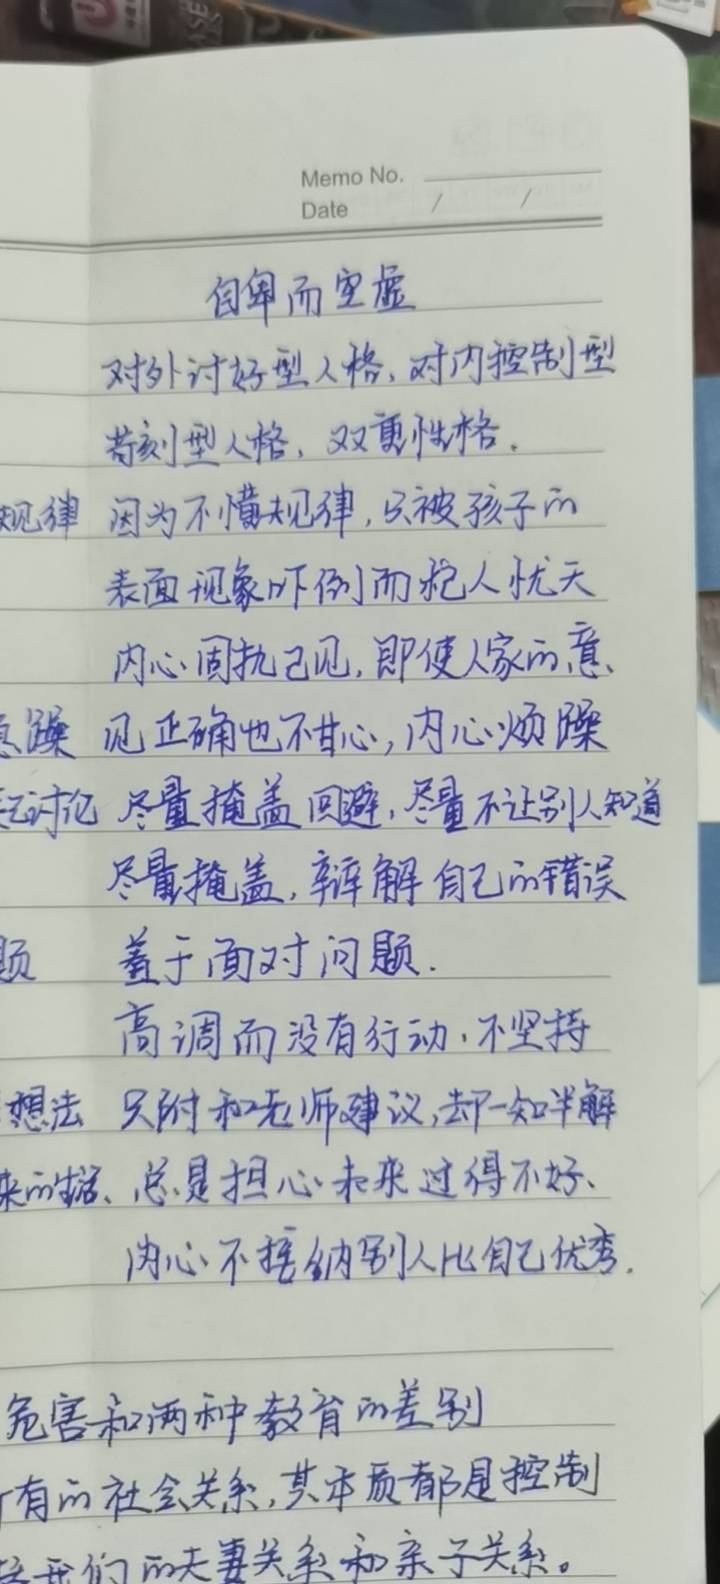 Memo No.
Date / /
自卑而空虚
对外讨好型人格、对内控制型
苛刻型人格、双重性格.
规律 因为不懂规律,只被孩子的
表面现象吓倒而杞人忧天
内心固执己见,即使人家的意、
躁 见正确也不甘心,内心烦躁
讨论 尽量掩盖回避,尽量不让别人知道
尽量掩盖,辩解自己的错误
题 羞于面对问题.
高调而没有行动,不坚持
想法 只附和老师建议,却一知半解
来的生活、总是担心未来过得不好、
内心不接纳别人比自己优秀.
危害和两种教育的差别
有的社会关系,其本质都是控制
我们的夫妻关系和亲子关系。